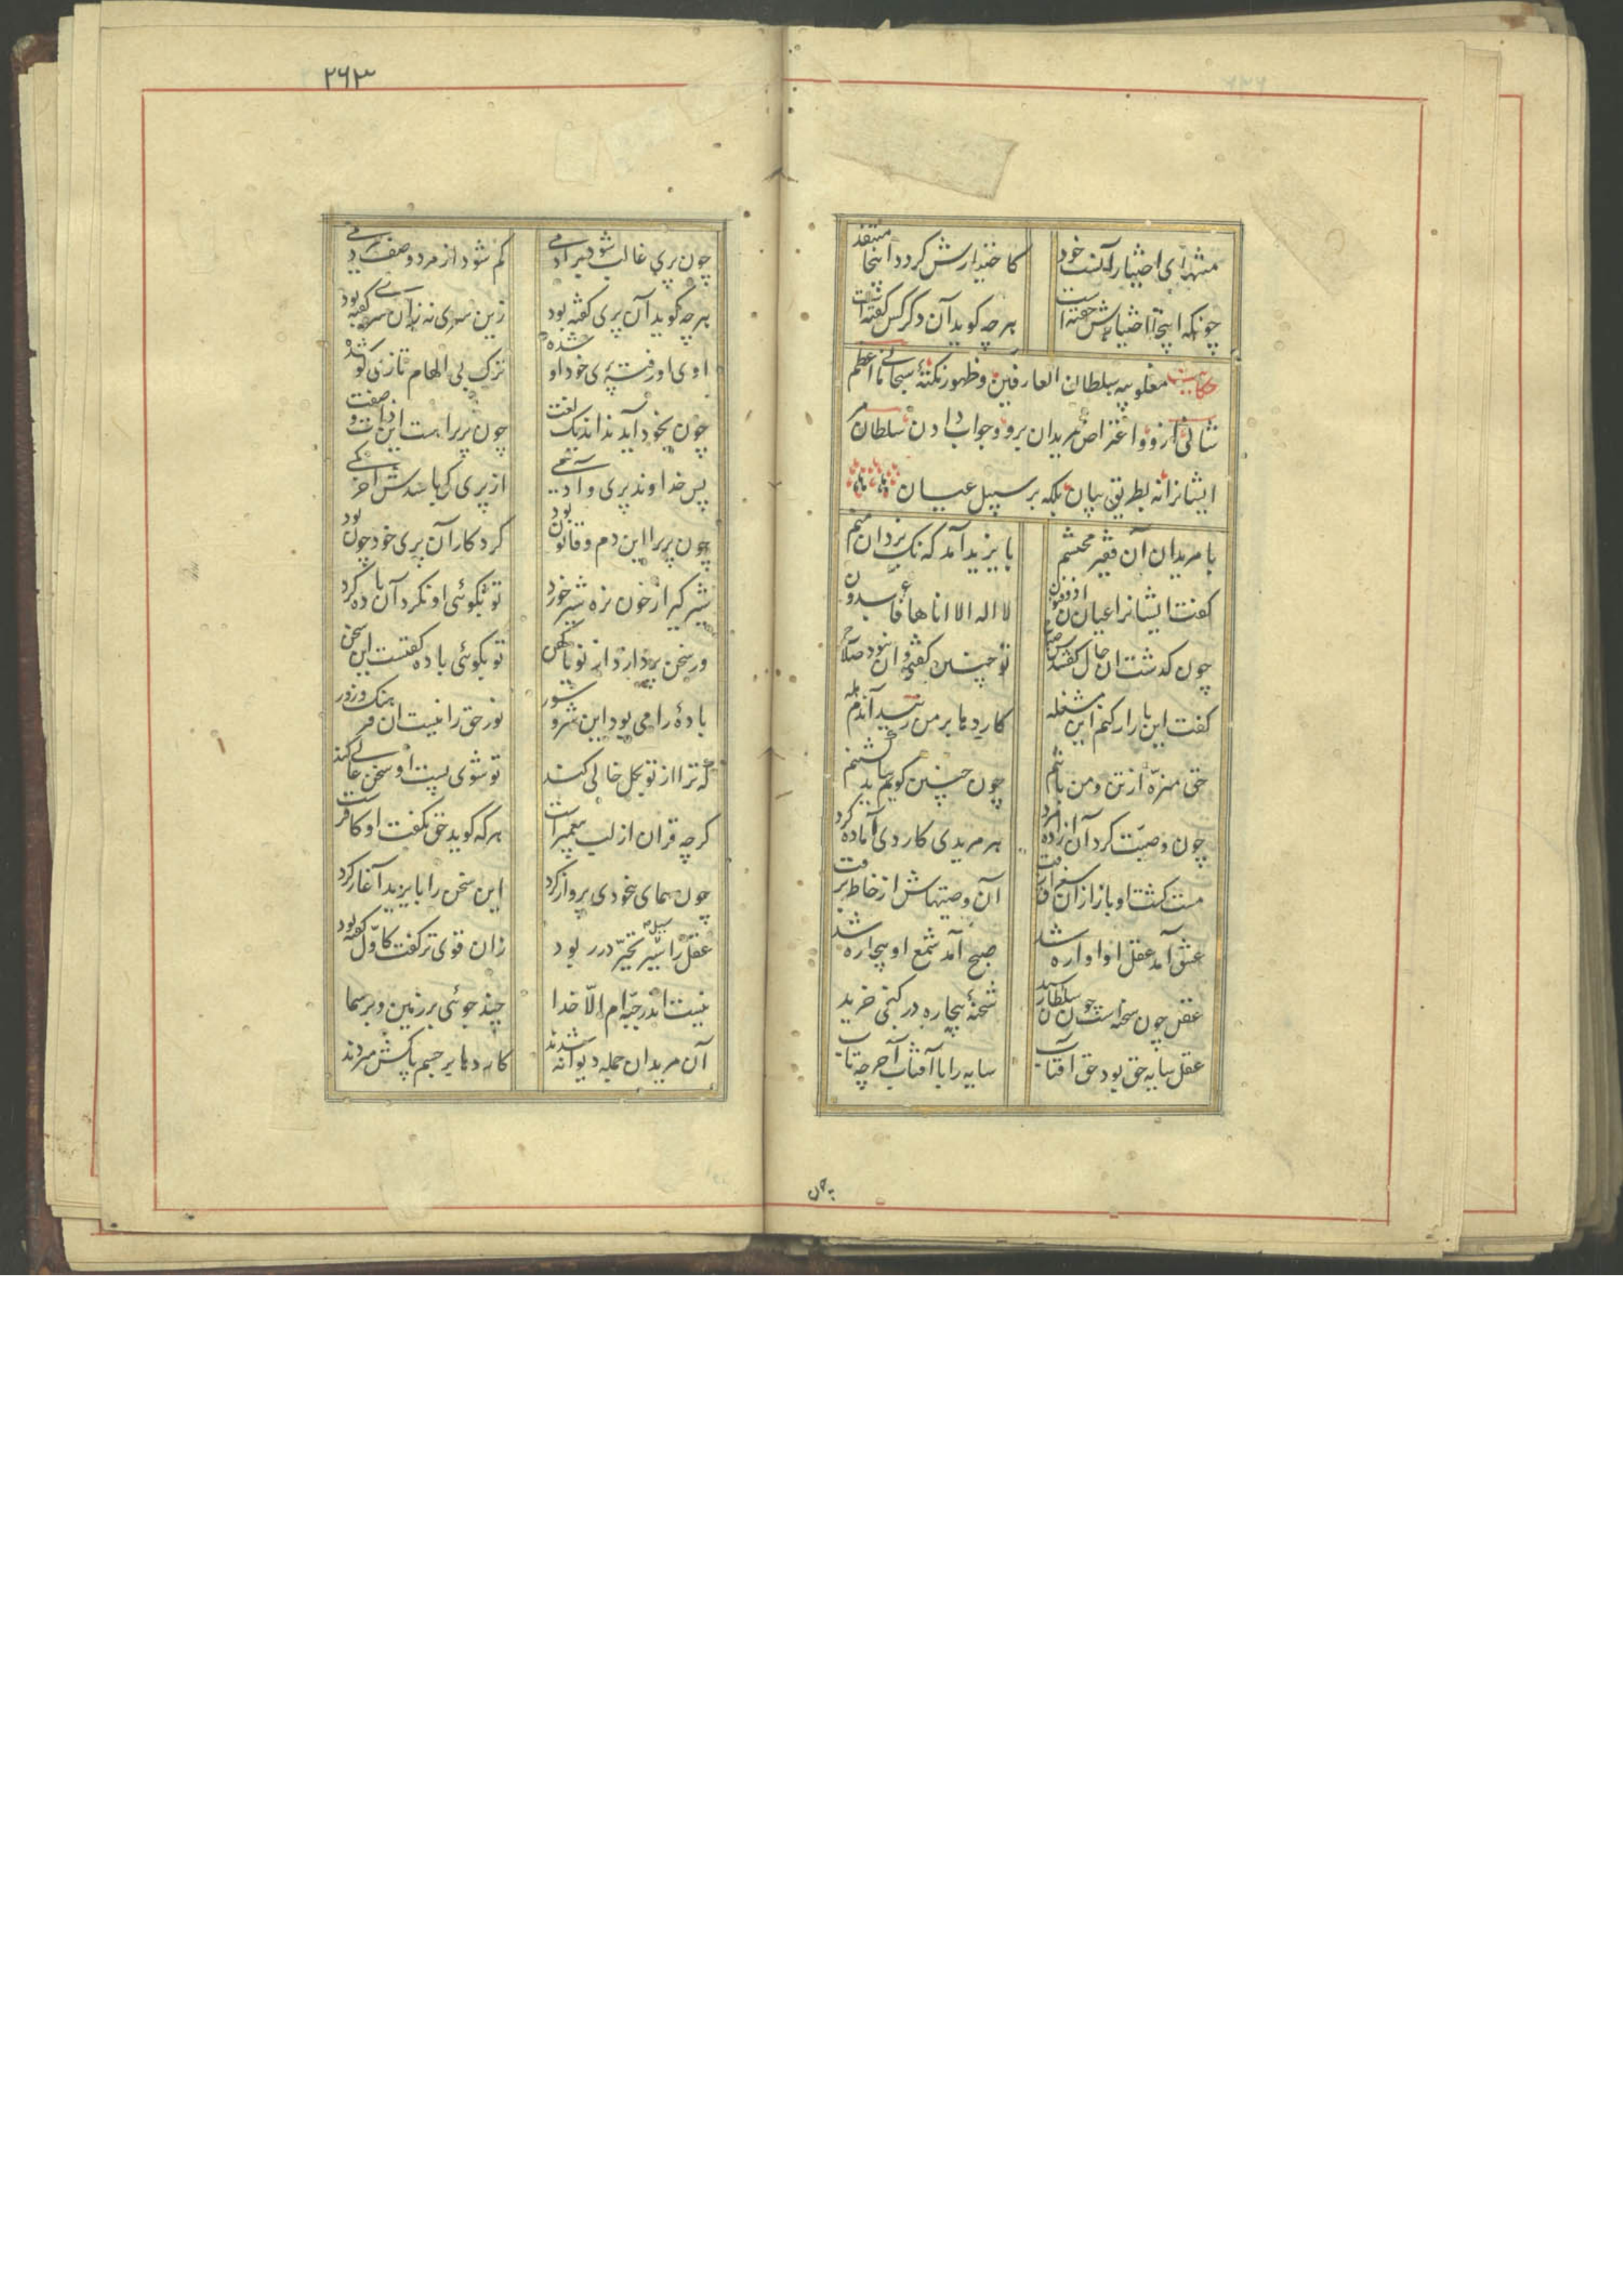 منتهای اختیار آنست خود
کاختیارش کردد اینجا مفتقد
چونکه اینجا اختیارش خفته است
هرچه کوید آن دکر کس کفته است
حکایت مغلوبیه سلطان العارفین وظهور نکتهٔ سبحانی ما اعظم
شانی ازو و اعتراض مریدان برو وجواب دادن سلطان مر
ایشانرا نه بطریق بیان بلکه بر سبیل عیان
با مریدان آن فقیر محتشم
بایزید آمد که نک یزدان منم
کفت ایشانرا عیان آن ذوفنون
لا اله الا انا ها فاعبدون
چون کذشت آن حال کفتندش صباح
تو چنین کفتی و آن نبود صلاح
کفت این بار ار کنم این مشغله
کاردها بر من زنید آندم هله
حق منزّه از تن و من باتنم
چون چنین کویم بباید کشتنم
چون وصیّت کرد آن آزاد مرد
هر مریدی کاردی آماده کرد
مست کشت او باز از آن سغراق زفت
آن وصیتهاش از خاطر برفت
عشق آمد عقل او اواره شد
صبح آمد شمع او بیچاره شد
عقل چون شحنه است چون سلطان رسید
شحنهٔ بیچاره در کنجی خزید
عقل سایه حق بود حق آفتاب
سایه را با آفتاب آخر چه تاب
چون
۲۶۳
چون پری غالب شود بر آدمی
کم شود از مرد وصف مردمی
هرچه کوید آن پری کفته بود
زین سری نه زان سری کفته بود
اوی او رفته پری خود او شده
ترک بی الهام تازی کو شده
چون بخود آید نداند یک لغت
چون پریرا هست این ذات و صفت
پس خداوند پری و آدمی
از پری کی باشدش آخر کمی
چون پریرا این دم و قانون بود
کردکار آن پری خود چون بود
شیرکیر ار خون نره شیر خورد
تو بکوئی او نکرد آن باده کرد
ور سخن بردازد از نو یا کهن
تو بکوئی باده کفتست این سخن
بادهٔ را می بود این شر و شور
نور حق را نیست آن فرهنک و زور
که ترا از تو بکل خالی کند
تو شوی پست او سخن عالی کند
کرچه قران از لب پیغمبر است
هرکه کوید حق نکفت او کافر است
چون همای بیخودی پرواز کرد
این سخن را بایزید آغاز کرد
عقل را سیل تحیّر در ربود
زان قوی تر کفت کاوّل کفته بود
نیست اندر جبّه‌ام الّا خدا
چند جوئی بر زمین و بر سما
آن مریدان جمله دیوانه شدند
کاردها بر جسم پاکش میزدند